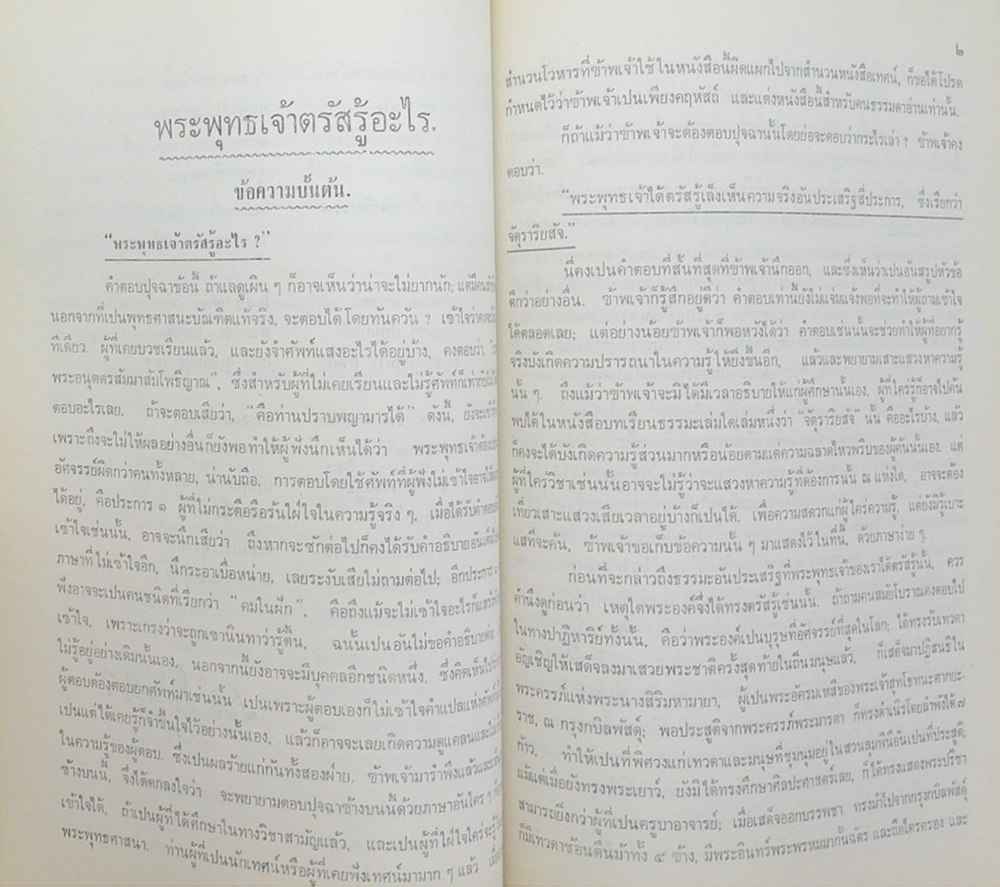 พระพุทธเจ้าตรัสรู้อะไร.
ข้อความบั้นต้น.
“พระพุทธเจ้าตรัสรู้อะไร ?”
คำตอบปุจฉาข้อนี้ ถ้าแลดูเผิน ๆ ก็อาจเห็นว่าน่าจะไม่ยากนัก; แต่มีคนสัก
นอกจากที่เปนพุทธศาสนะบัณฑิตแท้จริง, จะตอบได้โดยทันควัน ? เข้าใจว่า
ทีเดียว. ผู้ที่เคยบวชเรียนแล้ว, และยังจำศัพท์แสงอะไรได้อยู่บ้าง, คงตอบว่า
พระอนุตตรสัมมาสัมโพธิญาณ”, ซึ่งสำหรับผู้ที่ไม่เคยเรียนและไม่รู้ศัพท์ก็เท่ากับ
ตอบอะไรเลย. ถ้าจะตอบเสียว่า, “คือท่านปราบพญามารได้” ดังนี้, ยังจะ
เพราะถึงจะไม่ให้ผลอย่างอื่นก็ยังพอทำให้ผู้ฟังนึกเห็นได้ว่า พระพุทธเจ้าต้อง
อัศจรรย์ผิดกว่าคนทั้งหลาย, น่านับถือ. การตอบโดยใช้ศัพท์ที่ผู้ฟังไม่เข้าใจอาจ
ได้อยู่, คือประการ ๑ ผู้ที่ไม่กระตือรือร้นใฝ่ใจในความรู้จริง ๆ, เมื่อได้รับคำตอบ
เข้าใจเช่นนั้น, อาจจะนึกเสียว่า ถึงหากจะซักต่อไปก็คงได้รับคำอธิบายอัน
ภาษาที่ไม่เข้าใจอีก, นึกระอาเบื่อหน่าย, เลยระงับเสียไม่ถามต่อไป; อีกประการ ๑
ฟังอาจจะเปนคนชนิดที่เรียกว่า “คมในฝัก”, คือถึงแม้จะไม่เข้าใจอะไรก็
เข้าใจ, เพราะเกรงว่าจะถูกเขานินทาว่ารู้ตื้น, ฉนั้นเปนอันไม่ขอคำอธิบายต่อ,
ไม่รู้อยู่อย่างเดิมนั้นเอง. นอกจากนี้ยังอาจจะมีบุคคลอีกชนิดหนึ่ง, ซึ่งคิดเห็นไป
ผู้ตอบต้องตอบยกศัพท์มาเช่นนั้น เปนเพราะผู้ตอบเองก็ไม่เข้าใจคำแปลแห่งศัพท์
เปนแต่ได้เคยรู้ก็จำขึ้นใจไว้อย่างนั้นเอง, แล้วก็อาจจะเลยเกิดความดูแคลนและ
ในความรู้ของผู้ตอบ, ซึ่งเปนผลร้ายแก่กันทั้งสองฝ่าย. ข้าพเจ้ามารำพึงแล้วและ
ข้างบนนี้, จึงได้ตกลงใจว่า จะพยายามตอบปุจฉาข้างบนนี้ด้วยภาษาอันใคร ๆ
เข้าใจได้, ถ้าเปนผู้ที่ได้ศึกษาในทางวิชาสามัญแล้ว, และเปนผู้ที่ใฝ่ใจใคร่จะรู้
พระพุทธศาสนา. ท่านผู้ที่เปนนักเทศน์หรือผู้ที่เคยฟังเทศน์มามาก ๆ แล้ว
๒
สำนวนโวหารที่ข้าพเจ้าใช้ในหนังสือนี้ผิดแผกไปจากสำนวนหนังสือเทศน์, ก็ขอได้โปรด
กำหนดไว้ว่าข้าพเจ้าเปนเพียงคฤหัสถ์ และแต่งหนังสือนี้สำหรับคนธรรมดาอ่านเท่านั้น.
ก็ถ้าแม้ว่าข้าพเจ้าจะต้องตอบปุจฉานั้นโดยย่อจะตอบว่ากระไรเล่า ? ข้าพเจ้าคง
ตอบว่า.
“พระพุทธเจ้าได้ตรัสรู้เล็งเห็นความจริงอันประเสริฐสี่ประการ, ซึ่งเรียกว่า
จัตุราริยสัจ.”
นี่คงเปนคำตอบที่สั้นที่สุดที่ข้าพเจ้านึกออก, และซึ่งเห็นว่าเปนอันสรุปหัวข้อ
ดีกว่าอย่างอื่น. ข้าพเจ้าก็รู้สึกอยู่ดีว่า คำตอบเท่านี้ยังไม่แจ่มแจ้งพอที่จะทำให้ผู้ถามเข้าใจ
ได้ตลอดเลย; แต่อย่างน้อยข้าพเจ้าก็พอหวังได้ว่า คำตอบเช่นนั้นจะช่วยทำให้ผู้ที่อยากรู้
จริงบังเกิดความปรารถนาในความรู้ให้ยิ่งขึ้นอีก, แล้วและพยายามเสาะแสวงหาความรู้
นั้น ๆ. ถึงแม้ว่าข้าพเจ้าจะมิได้มีเวลาอธิบายให้แก่ผู้ศึกษานั้นเอง, ผู้ที่ใคร่รู้ก็อาจไปค้น
พบได้ในหนังสือบทเรียนธรรมะเล่มใดเล่มหนึ่งว่า “จัตุราริยสัจ” นั้น คืออะไรบ้าง, แล้ว
ก็คงจะได้บังเกิดความรู้ส่วนมากหรือน้อยตามแต่ความฉลาดไหวพริบของผู้ค้นนั้นเอง. แต่
ผู้ที่ใคร่วิชาเช่นนั้นอาจจะไม่รู้ว่าจะแสวงหาความรู้ที่ต้องการนั้น ณ แห่งใด, อาจจะต้อง
เที่ยวเสาะแสวงเสียเวลาอยู่บ้างก็เปนได้. เพื่อความสดวกแก่ผู้ใคร่ความรู้, แต่ยังมิรู้เบาะ
แสที่จะค้น, ข้าพเจ้าขอเก็บข้อความนั้น ๆ มาแสดงไว้ในที่นี้, ด้วยภาษาง่าย ๆ.
ก่อนที่จะกล่าวถึงธรรมะอันประเสริฐที่พระพุทธเจ้าของเราได้ตรัสรู้นั้น, ควร
คำนึงดูก่อนว่า เหตุใดพระองค์จึงได้ทรงตรัสรู้เช่นนั้น. ถ้าถามคนสมัยโบราณคงตอบไป
ในทางปาฏิหาริย์ทั้งนั้น, คือว่าพระองค์เปนบุรุษที่อัศจรรย์ที่สุดในโลก; ได้ทรงรับเทวดา
อัญเชิญให้เสด็จลงมาเสวยพระชาติครั้งสุดท้ายในถิ่นมนุษแล้ว, ก็เสด็จมาปฏิสนธิใน
พระครรภ์แห่งพระนางสิริมหามายา, ผู้เปนพระอัครมเหสีของพระเจ้าสุทโธทนะศากยะ-
ราช, ณ กรุงกบิลพัสดุ์; พอประสูติจากพระครรภ์พระมารดา ก็ทรงดำเนิรโดยลำพังได้ ๗
ก้าว, ทำให้เปนที่พิศวงแก่เทวดาและมนุษที่ชุมนุมอยู่ในสวนลุมพินีอันเปนที่ประสูติ;
แม้แต่เมื่อยังทรงพระเยาว์, ยังมิได้ทรงศึกษาศิลปะศาสตร์เลย, ก็ได้ทรงแสดงพระปรีชา
สามารถยิ่งกว่าผู้ที่เปนครูบาอาจารย์; เมื่อเสด็จออกบรรพชา ทรงม้าไปจากกรุงกบิลพัสดุ์
ก็มีเทวดาซ้อนตีนม้าทั้ง ๔ ข้าง, มีพระอินทร์พระพรหมมากั้นฉัตร และถือไตรครอง และ